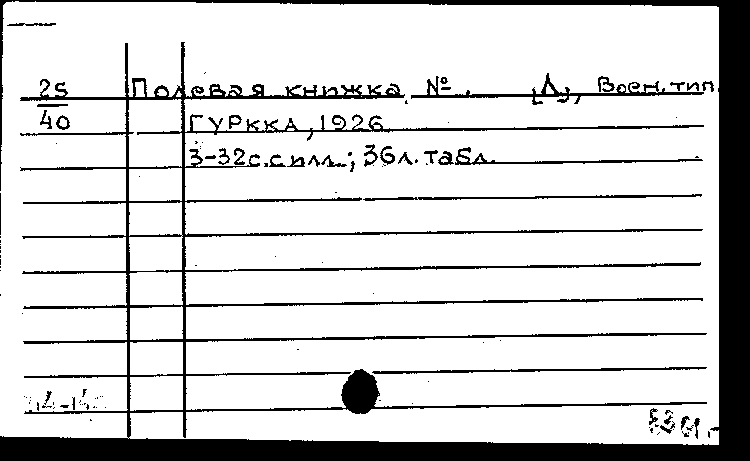 25 Полевая книжка № . [Л], Воен. тип.
40 ГУРККА, 1926
3-32 с. с илл.; 36 л. табл.